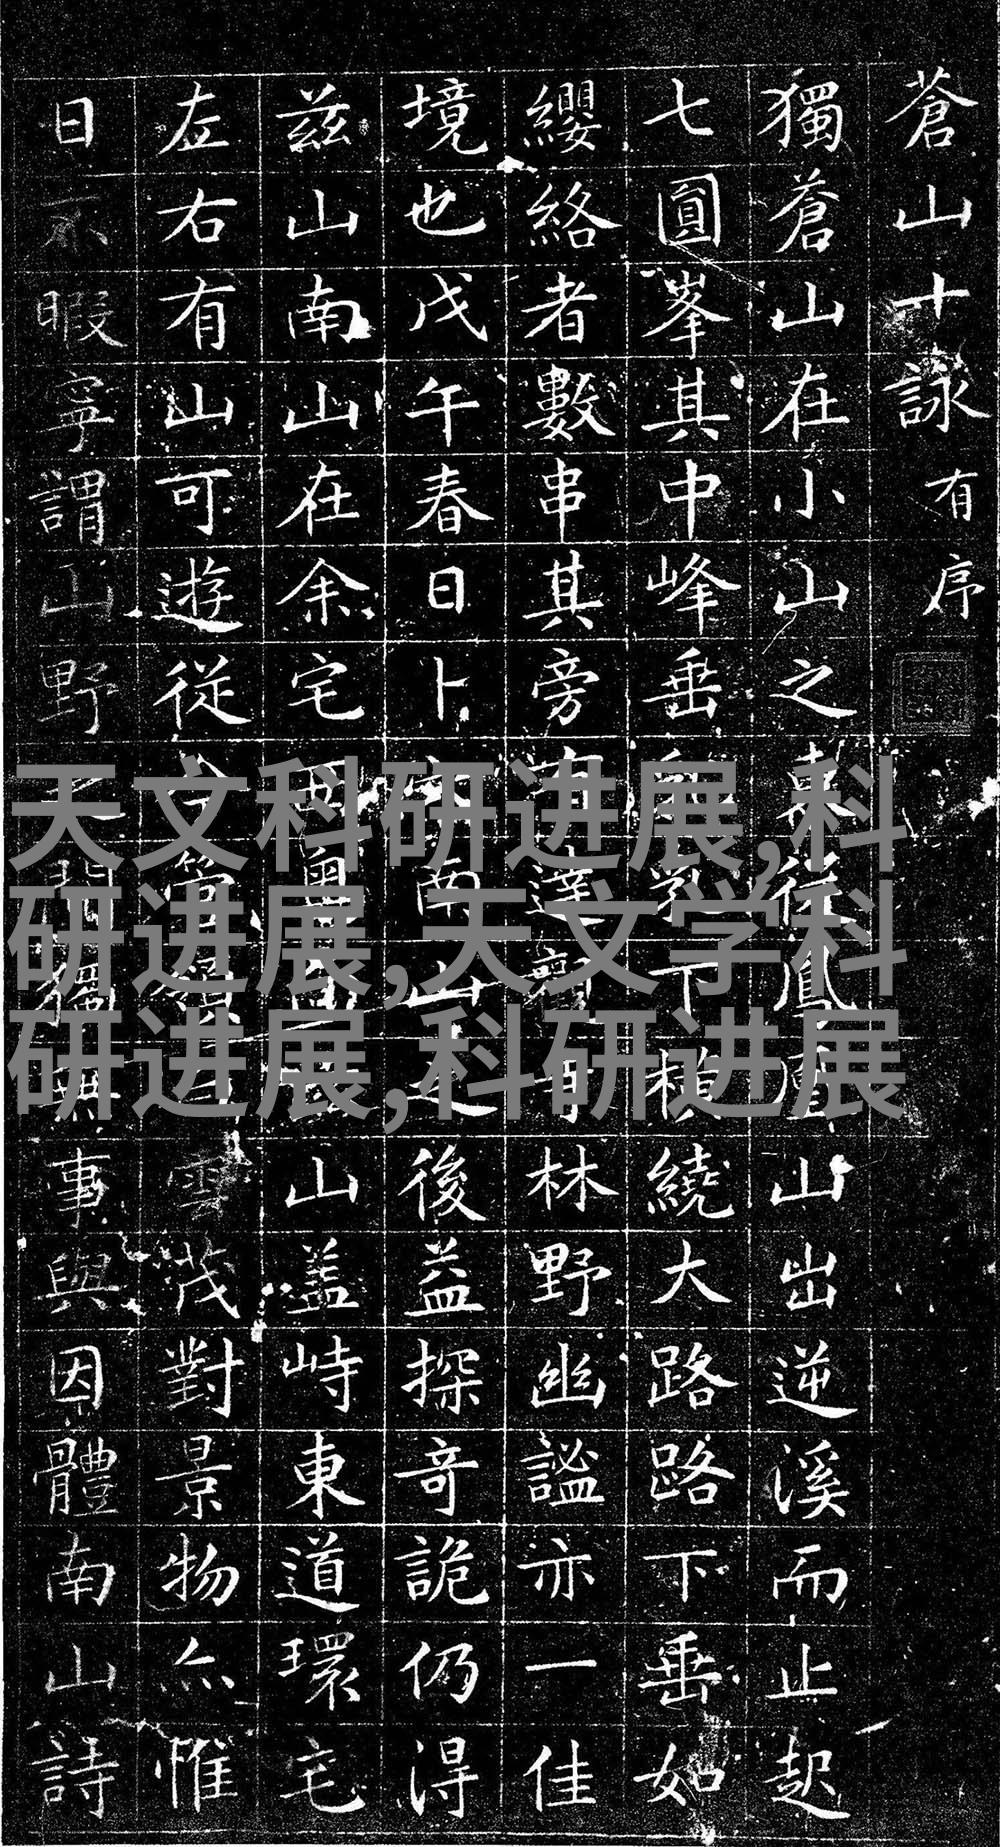 蒼山十詠 有序
獨蒼山在小山之東從鳳山出逆溪而止起
七圓峯其中峰垂乳下樹繞大路路下垂如
纓絡者數串其旁有達齊林野幽謐亦一佳
境也戊午春日卜南山之後益探奇詭仍得
茲山南山在余宅西山盖峙東道環宅
左右有山可遊從今管領白雲茂對景物亦惟
日不暇寧謂山野之間獨無事與因體南山詩
天文科研进展,科
研进展,天文学科
研进展,科研进展